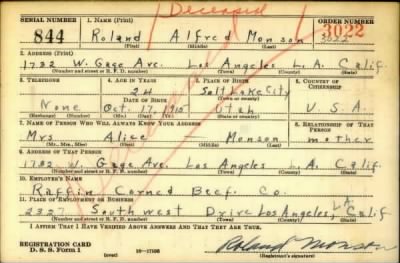 Deceased
SERIAL NUMBER 1. NAME (Print) ORDER NUMBER
844 Roland Alfred Monson 3022
(First) (Middle) (Last) 3022
2. ADDRESS (Print)
1732 W. Gage Ave. Los Angeles L.A. Calif.
(Number and street or R. F. D. number) (Town) (County) (State)
3. TELEPHONE 4. AGE IN YEARS 5. PLACE OF BIRTH 6. COUNTRY OF CITIZENSHIP
24 Salt Lake City
None DATE OF BIRTH (Town or county)
Oct. 17, 1915 Utah U.S.A.
(Exchange) (Number) (Mo.) (Day) (Yr.) (State or country)
7. NAME OF PERSON WHO WILL ALWAYS KNOW YOUR ADDRESS 8. RELATIONSHIP OF THAT PERSON
Mrs. Alice Monson mother
(Mr., Mrs., Miss) (First) (Middle) (Last)
9. ADDRESS OF THAT PERSON
1732 W. Gage Ave. Los Angeles L.A. Calif.
(Number and street or R. F. D. number) (Town) (County) (State)
10. EMPLOYER'S NAME
Raffin Corned Beef. Co.
11. PLACE OF EMPLOYMENT OR BUSINESS
2327 Southwest Drive Los Angeles, L.A. Calif
(Number and street or R. F. D. number) (Town) (County) (State)
I AFFIRM THAT I HAVE VERIFIED ABOVE ANSWERS AND THAT THEY ARE TRUE.
REGISTRATION CARD
D. S. S. Form 1 (over) 16—17105 Roland Monson
(Registrant's signature)